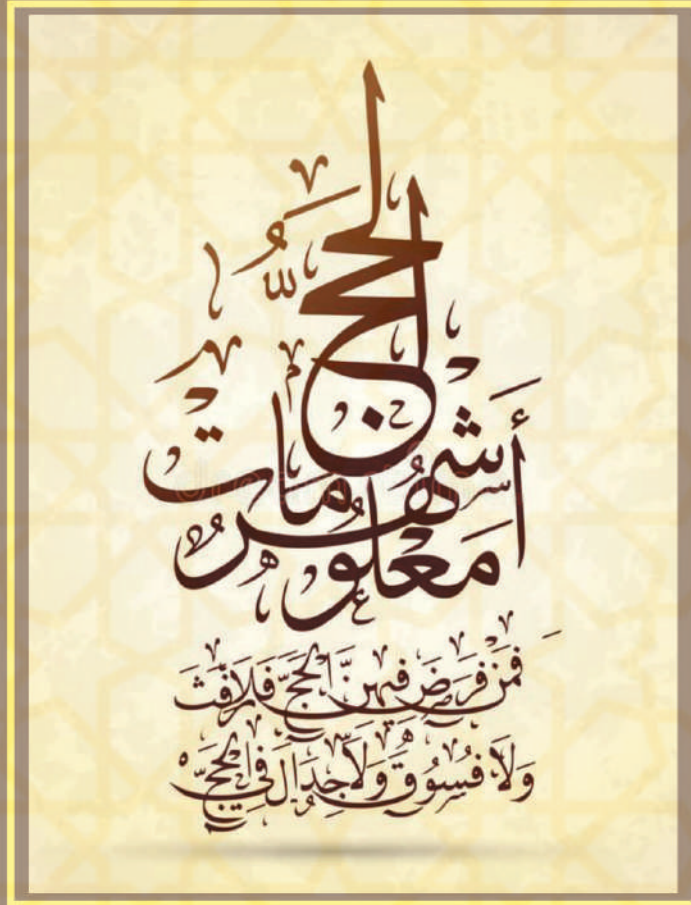 الحَجُّ
أَشْهُرٌ
مَعْلُومَاتٌ
فَمَنْ فَرَضَ فِيهِنَّ الْحَجَّ فَلَا رَفَثَ
وَلَا فُسُوقَ وَلَا جِدَالَ فِي الْحَجِّ